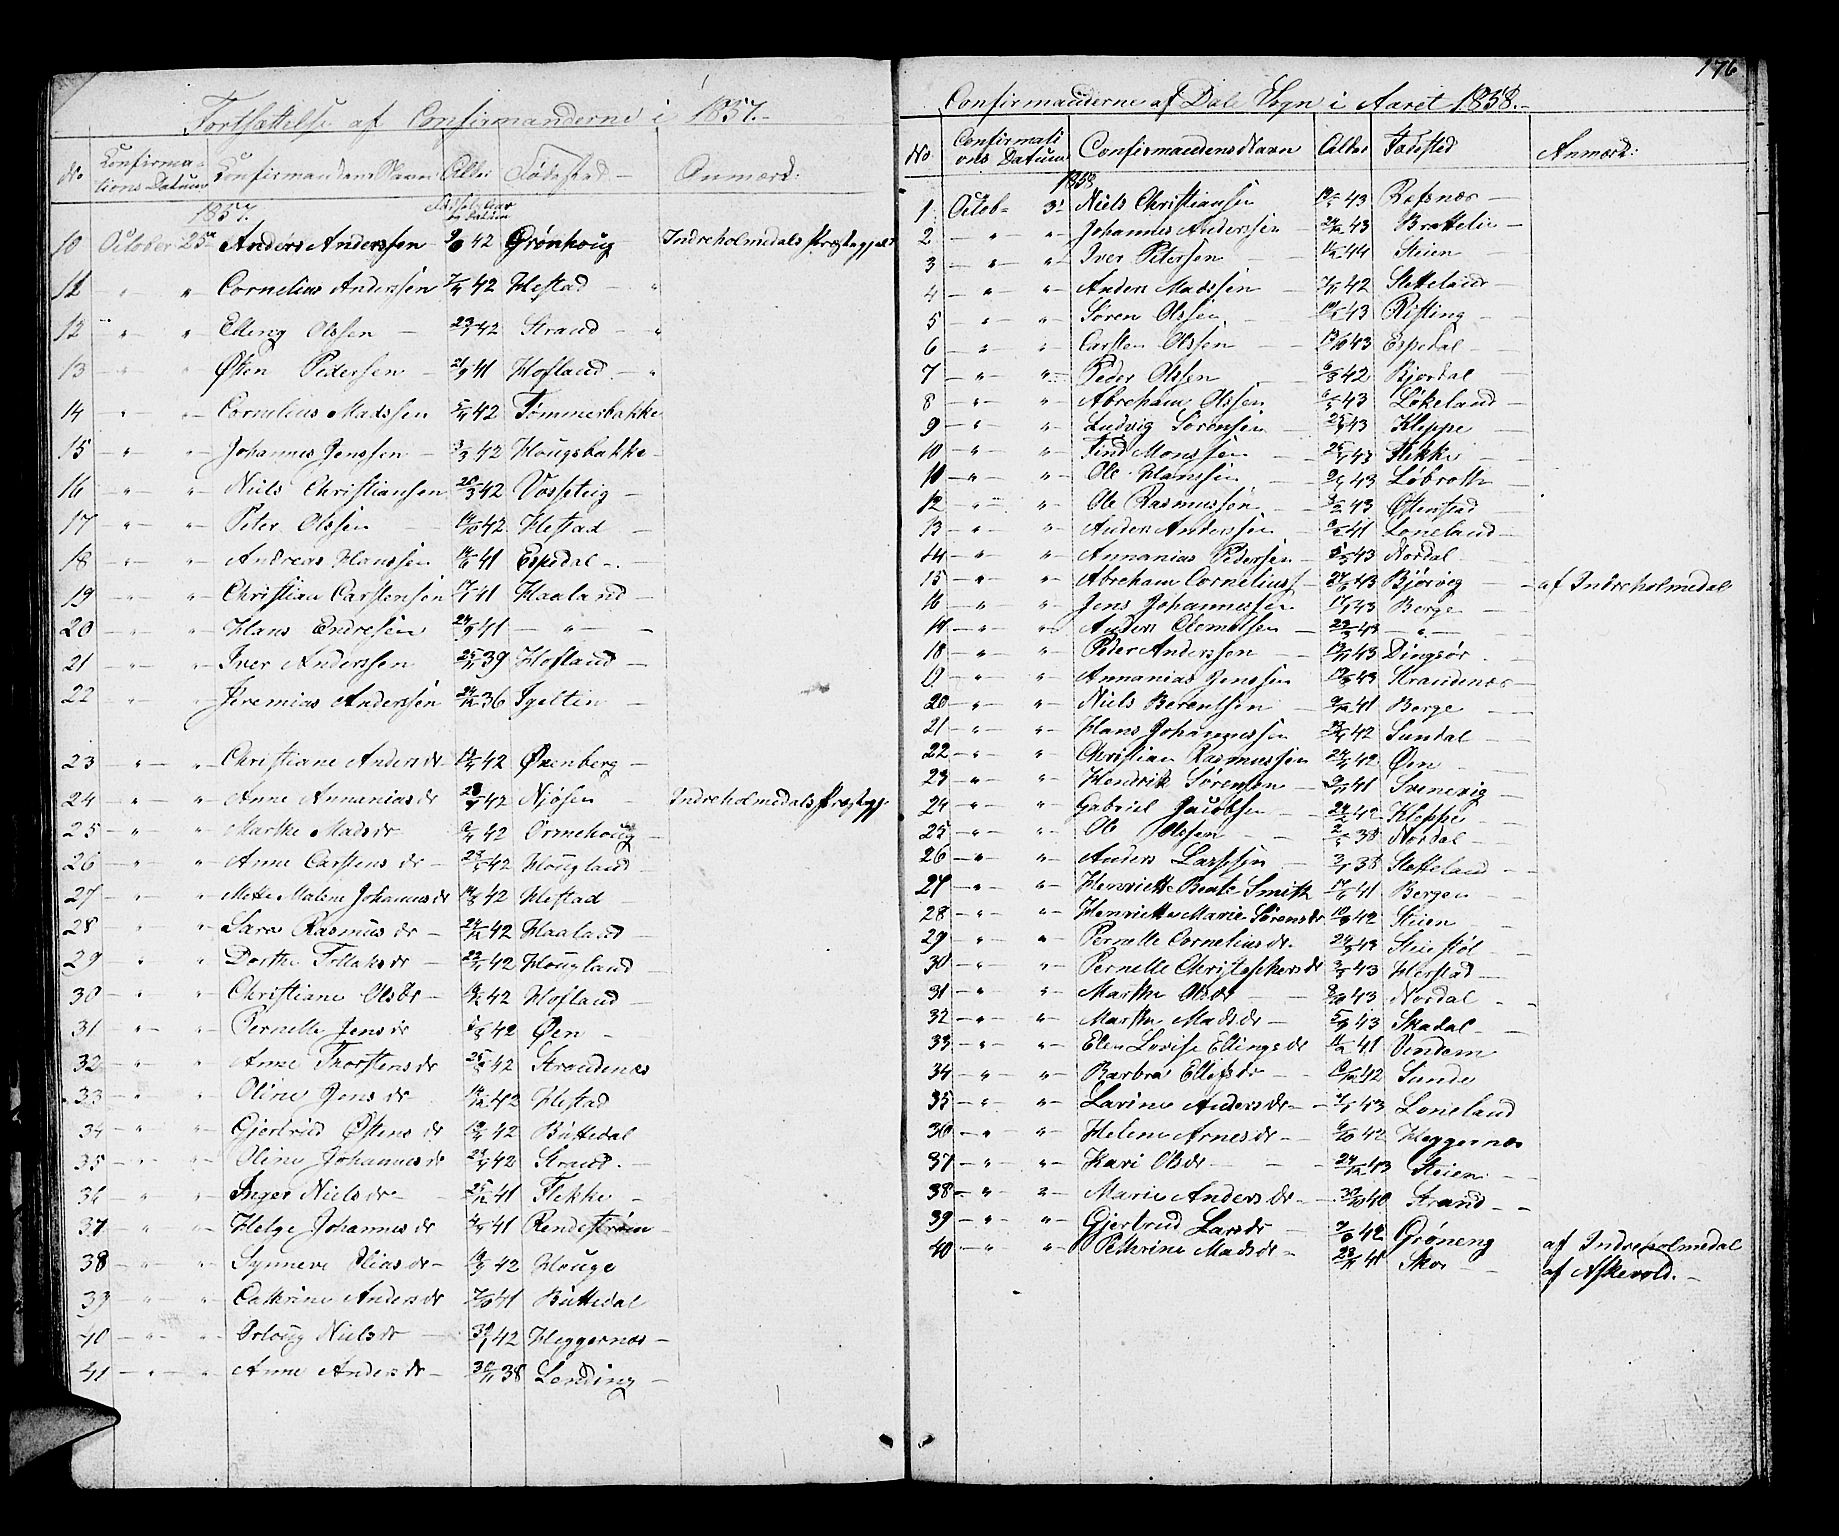 Fortsættelse af Confirmanderne i 1857.-
No Konfirmations Datum Konfirmandens Navn Alder Fødested Anmærk:
1857. Fødselsaar og Datum
10 October 25de Anders Anderssen 42 Grønhoug Indreholmedals Præstegjeld
11 " " Cornelius Anderssen 42 Hestad "
12 " " Elling Olssen 42 Strand "
13 " " Østen Pedersen 41 Hofland "
14 " " Cornelius Madssen 42 Tømmerbakke
15 " " Johannes Jenssen 42 Hougsbakke
16 " " Niels Christiansen 42 Vasseteig
17 " " Peter Olssen 42 Hestad
18 " " Andreas Hanssen 41 Espedal
19 " " Christian Carstensen 41 Haaland
20 " " Hans Endresen 41 "
21 " " Iver Anderssen 39 Hofland
22 " " Jeremias Anderssen 36 Igeltin
23 " " Christiane Andersdr 42 Øxenberg
24 " " Anne Annaniasdr 42 Njøsen Indreholmedals Præstegj.
25 " " Marthe Madsdr 42 Ormehoug
26 " " Anne Carstensdr 42 Hougland
27 " " Mette Malene Johannesdr 42 Hestad
28 " " Sara Rasmusdr 42 Haaland
29 " " Dorthe Tollaksdr 42 Hougland
30 " " Christiane Olsdr 42 Hofland
31 " " Pernelle Jensdr 42 Øen
32 " " Anne Thorstensdr 42 Strandenæs
33 " " Oline Jensdr 42 Hestad
34 " " Gjertrud Østensdr 42 Büttedal
35 " " Oline Johannesdr 42 Strand
36 " " Inger Nielsdr 41 Flekke
37 " " Helge Johannesdr 41 Rendestrøm
38 " " Synneve Eliasdr 42 Houge
39 " " Cathrine Andersdr 41 Büttedal
40 " " Orloug Nielsdr 42 Heggernæs
41 " " Anne Andersdr 38 Londing
176
Confirmanderne af Dale Sogn i Aaret 1858.-
No Confirmations Datum Confirmandens Navn Alder Fødested Anmærk:
1858
1 Octob 3die Niels Christiansen 43 Rafsnæs
2 " " Johannes Anderssen 43 Brattelie
3 " " Iver Petersen 44 Steien
4 " " Anders Madssen 42 Sletteland
5 " " Søren Olssen 43 Risting
6 " " Carsten Olssen 43 Espedal
7 " " Peder Olssen 42 Bjordal
8 " " Abraham Olssen 43 Løkeland
9 " " Ludvig Sørensen 43 Kleppe
10 " " Find Monssen 43 Flekke
10 " " Ole Hanssen 43 Løbroth
12 " " Ole Rasmussen 43 Østenstad
13 " " Anders Anderssen 41 Loneland
14 " " Annanias Pederssen 43 Nordal
15 " " Abraham Corneliuss 43 Bjørvig af Indreholmedal
16 " " Jens Johannessen 43 Berge
17 " " Anders Clemetsen 43 "
18 " " Peder Anderssen 43 Dingsør
19 " " Annanias Jenssen 43 Strandenæs
20 " " Niels Berentsen 41 Berge
21 " " Hans Johannessen 42 Sundal
22 " " Christian Rasmussen 42 Øen
23 " " Hendrik Sørensen 41 Svenevig
24 " " Gabriel Jacobsen 42 Kleppe
25 " " Ole Olssen 38 Nordal
26 " " Anders Larssen 38 Sletteland
27 " " Henriette Beate Smith 41 Bergen
28 " " Henriette Marie Sørensdr 42 Steien
29 " " Pernelle Corneliusdr 43 Steiestøl
30 " " Pernelle Christophersdr 43 Herstad
31 " " Marthe Olsdr 43 Nordal
32 " " Marthe Madsdr 43 Skadal
33 " " Elen Lovise Ellingsdr 41 Vindem
34 " " Barbra Ellefsdr 42 Sunde
35 " " Larine Andersdr 43 Loneland
36 " " Helene Arnesdr 42 Heggernæs
37 " " Kari Olsdr 43 Steien
38 " " Marie Andersdr 40 Strand
39 " " Gjertrud Larsdr 42 Grøneng af Indreholmedal
40 " " Petterine Madsdr 41 Skor af Askevold.